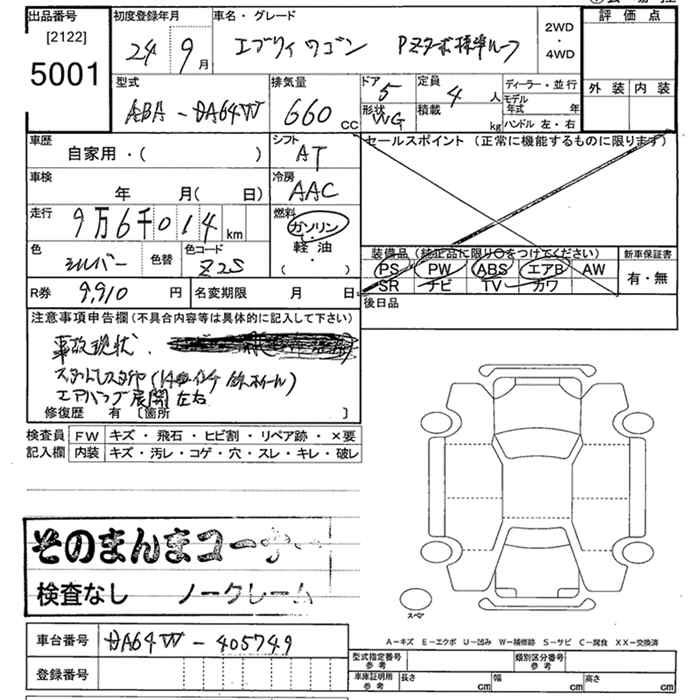 出品番号 初度登録年月 車名・グレード 評価点
[2122] 24 9月 エブリィワゴン PZターボ標準ルーフ 2WD・4WD
5001 外装 内装
型式 排気量 ドア 5 定員 4人 ディーラー・並行
ABA-DA64W 660cc 形状 WG 積載 kg モデル年式 年
ハンドル 左・右
車歴 シフト セールスポイント (正常に機能するものに限ります)
自家用・( ) AT
車検 冷房
年 月( 日) AAC
走行 9万6千014km 燃料 ガソリン
色 シルバー 色替 色コード Z2S 軽油
・( )
装備品 (純正品に限り○をつけてください) 新車保証書
PS PW ABS エアB AW 有・無
SR ナビ TV カワ
R券 9,910円 名変期限 月 日 後日品
注意事項申告欄(不具合内容等は具体的に記入して下さい)
事故現状.
スタッドレスタイヤ(14インチ鉄ホイール)
エアバッグ展開左右
修復歴 有 [箇所 ]
検査員 FW キズ・飛石・ヒビ割・リペア跡・×要
記入欄 内装 キズ・汚レ・コゲ・穴・スレ・キレ・破レ
そのまんまコーナー
検査なし ノークレーム
スペア
A-キズ E-エクボ U-凹み W-補修跡 S-サビ C-腐食 XX-交換済
車台番号 DA64W-405749
登録番号
型式指定番号 参考 類別区分番号 参考
車庫証明用 参考 長さ cm 幅 cm 高さ cm